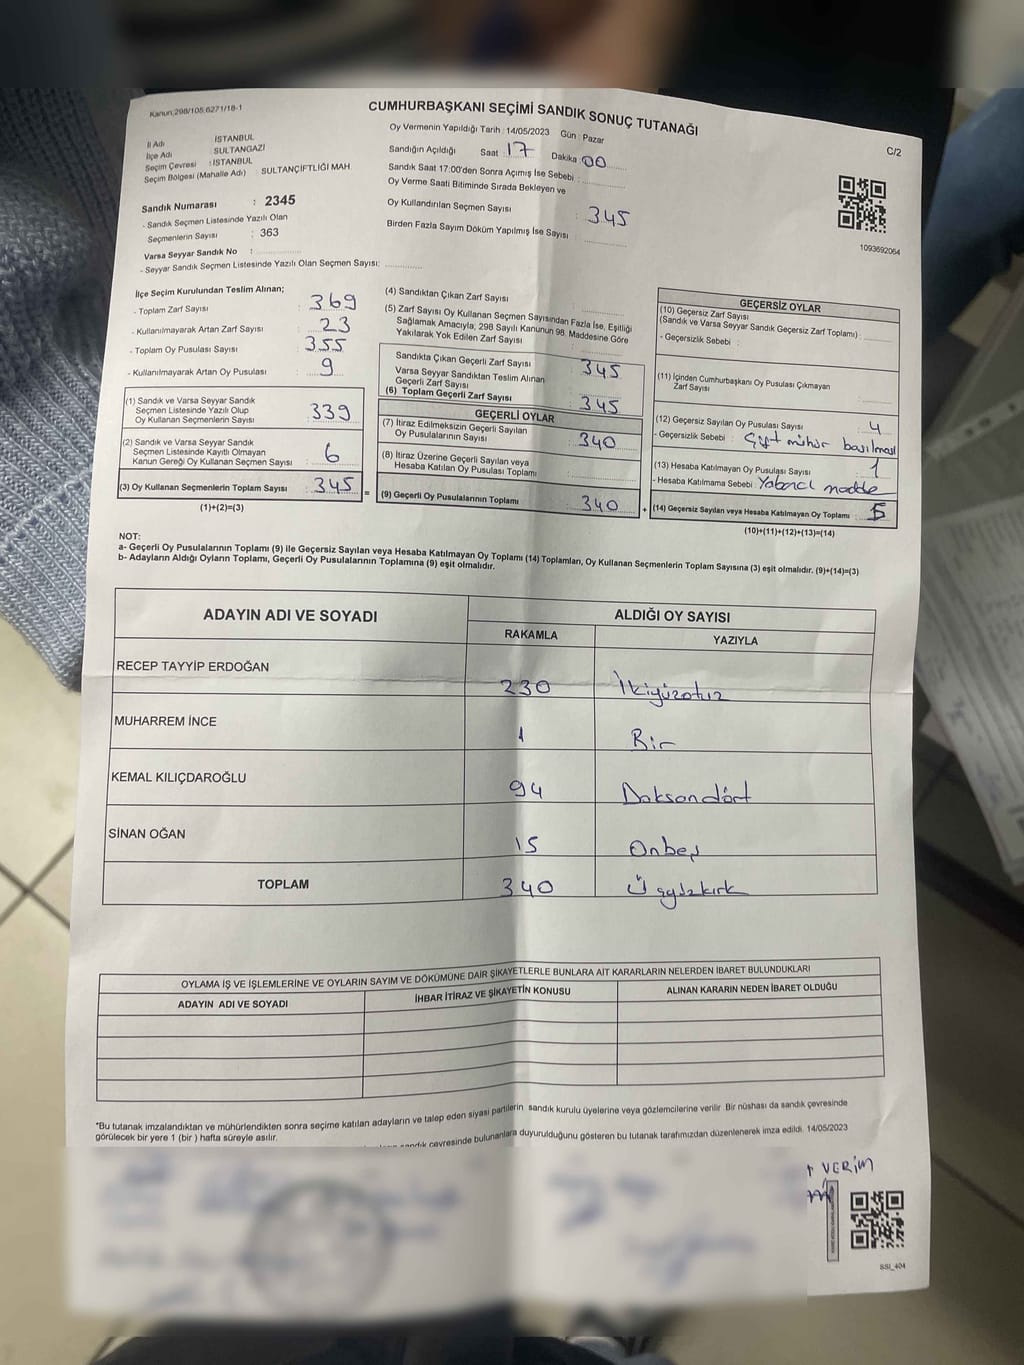 Kanun:298/105;6271/18-1
CUMHURBAŞKANI SEÇİMİ SANDIK SONUÇ TUTANAĞI
C/2
İl Adı İSTANBUL
İlçe Adı SULTANGAZİ
Seçim Çevresi : İSTANBUL
Seçim Bölgesi (Mahalle Adı) : SULTANÇİFTLİĞİ MAH.
Sandık Numarası : 2345
- Sandık Seçmen Listesinde Yazılı Olan
Seçmenlerin Sayısı : 363
Varsa Seyyar Sandık No :
- Seyyar Sandık Seçmen Listesinde Yazılı Olan Seçmen Sayısı:
Oy Vermenin Yapıldığı Tarih : 14/05/2023 Gün : Pazar
Sandığın Açıldığı Saat 17 Dakika 00
Sandık Saat 17:00'den Sonra Açımış İse Sebebi :
Oy Verme Saati Bitiminde Sırada Bekleyen ve
Oy Kullandırılan Seçmen Sayısı : 345
Birden Fazla Sayım Döküm Yapılmış İse Sayısı :
1093692064
İlçe Seçim Kurulundan Teslim Alınan;
- Toplam Zarf Sayısı : 369
- Kullanılmayarak Artan Zarf Sayısı : 23
- Toplam Oy Pusulası Sayısı : 355
- Kullanılmayarak Artan Oy Pusulası : 9
(1) Sandık ve Varsa Seyyar Sandık
Seçmen Listesinde Yazılı Olup
Oy Kullanan Seçmenlerin Sayısı : 339
(2) Sandık ve Varsa Seyyar Sandık
Seçmen Listesinde Kayıtlı Olmayan
Kanun Gereği Oy Kullanan Seçmen Sayısı : 6
(3) Oy Kullanan Seçmenlerin Toplam Sayısı : 345
(1)+(2)=(3)
(4) Sandıktan Çıkan Zarf Sayısı
(5) Zarf Sayısı Oy Kullanan Seçmen Sayısından Fazla İse, Eşitliği
Sağlamak Amacıyla, 298 Sayılı Kanunun 98. Maddesine Göre
Yakılarak Yok Edilen Zarf Sayısı
Sandıkta Çıkan Geçerli Zarf Sayısı : 345
Varsa Seyyar Sandıktan Teslim Alınan
Geçerli Zarf Sayısı
(6) Toplam Geçerli Zarf Sayısı : 345
GEÇERLİ OYLAR
(7) İtiraz Edilmeksizin Geçerli Sayılan
Oy Pusulalarının Sayısı : 340
(8) İtiraz Üzerine Geçerli Sayılan veya
Hesaba Katılan Oy Pusulası Toplamı
(9) Geçerli Oy Pusulalarının Toplamı : 340
GEÇERSİZ OYLAR
(10) Geçersiz Zarf Sayısı
(Sandık ve Varsa Seyyar Sandık Geçersiz Zarf Toplamı) :
- Geçersizlik Sebebi :
(11) İçinden Cumhurbaşkanı Oy Pusulası Çıkmayan
Zarf Sayısı
(12) Geçersiz Sayılan Oy Pusulası Sayısı : 4
- Geçersizlik Sebebi : Çift mühür basılması
(13) Hesaba Katılmayan Oy Pusulası Sayısı : 1
- Hesaba Katılmama Sebebi : Yabancı madde
(14) Geçersiz Sayılan veya Hesaba Katılmayan Oy Toplamı : 5
(10)+(11)+(12)+(13)=(14)
NOT:
a- Geçerli Oy Pusulalarının Toplamı (9) ile Geçersiz Sayılan veya Hesaba Katılmayan Oy Toplamı (14) Toplamları, Oy Kullanan Seçmenlerin Toplam Sayısına (3) eşit olmalıdır. (9)+(14)=(3)
b- Adayların Aldığı Oyların Toplamı, Geçerli Oy Pusulalarının Toplamına (9) eşit olmalıdır.
ADAYIN ADI VE SOYADI
ALDIĞI OY SAYISI
RAKAMLA YAZIYLA
RECEP TAYYİP ERDOĞAN 230 İkiyüzotuz
MUHARREM İNCE 1 Bir
KEMAL KILIÇDAROĞLU 94 Doksandört
SİNAN OĞAN 15 Onbeş
TOPLAM 340 Üçyüzkırk
OYLAMA İŞ VE İŞLEMLERİNE VE OYLARIN SAYIM VE DÖKÜMÜNE DAİR ŞİKAYETLERLE BUNLARA AİT KARARLARIN NELERDEN İBARET BULUNDUKLARI
ADAYIN ADI VE SOYADI İHBAR İTİRAZ VE ŞİKAYETİN KONUSU ALINAN KARARIN NEDEN İBARET OLDUĞU
*Bu tutanak imzalandıktan ve mühürlendikten sonra seçime katılan adayların ve talep eden siyasi partilerin sandık kurulu üyelerine veya gözlemcilerine verilir. Bir nüshası da sandık çevresinde
görülecek bir yere 1 (bir) hafta süreyle asılır.
sandık çevresinde bulunanlara duyurulduğunu gösteren bu tutanak tarafımızdan düzenlenerek imza edildi. 14/05/2023
VERİM
SSI_404